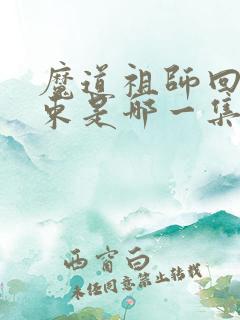 魔道祖师回
来是哪一集
西窗白
未经同意禁止转载